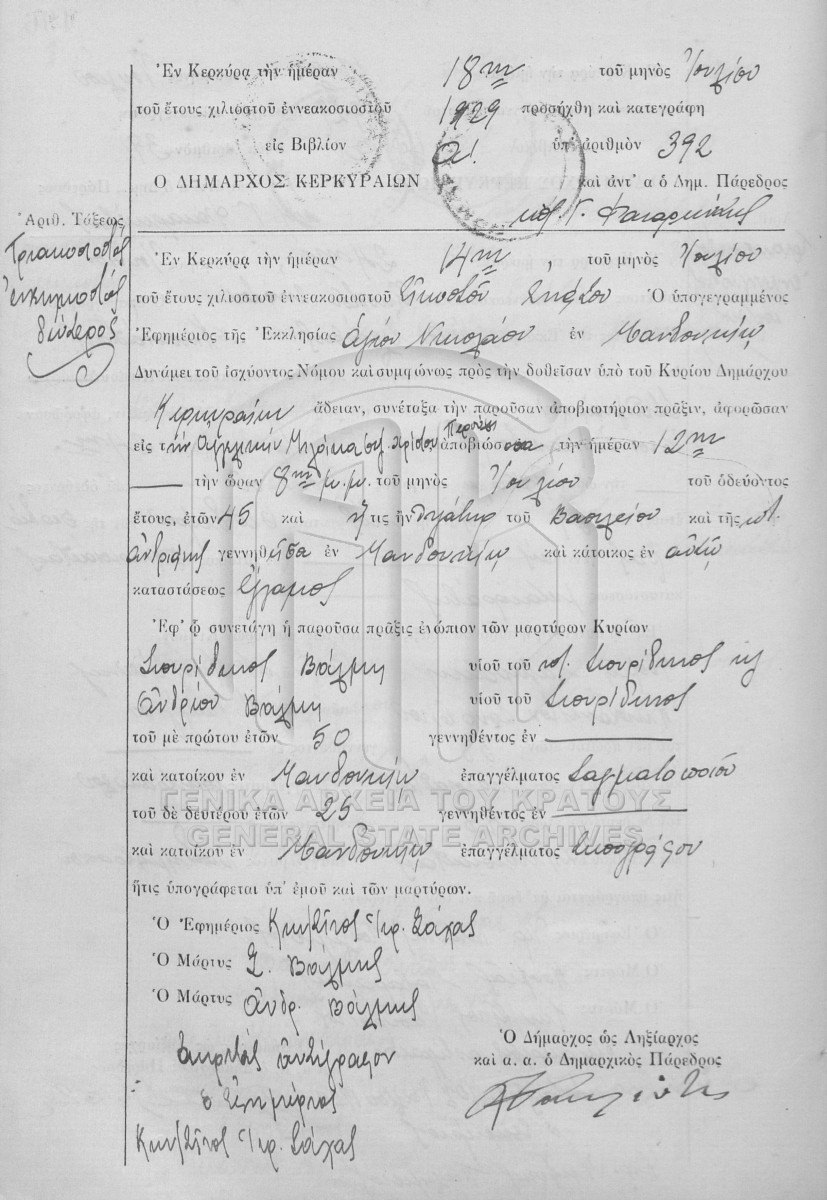 Ἐν Κερκύρᾳ τὴν ἡμέραν 18ην τοῦ μηνὸς Ἰουλίου
τοῦ ἔτους χιλιοστοῦ ἐννεακοσιοστοῦ 1929 προσήχθη καὶ κατεγράφη
εἰς Βιβλίον ὑπ' ἀριθμὸν 392
Ο ΔΗΜΑΡΧΟΣ ΚΕΡΚΥΡΑΙΩΝ καὶ ἀντ' α ὁ Δημ. Πάρεδρος
Ἀριθ. Τάξεως
Τριακοσιοστὸς
ἐνενηκοστὸς
δεύτερος
Ἐν Κερκύρᾳ τὴν ἡμέραν 14ην, τοῦ μηνὸς Ἰουλίου
τοῦ ἔτους χιλιοστοῦ ἐννεακοσιοστοῦ Εἰκοστοῦ Ἐνάτου Ὁ ὑπογεγραμμένος
Ἐφημέριος τῆς Ἐκκλησίας Ἁγίου Νικολάου ἐν Μανδουκίῳ
Δυνάμει τοῦ ἰσχύοντος Νόμου καὶ συμφώνως πρὸς τὴν δοθεῖσαν ὑπὸ τοῦ Κυρίου Δημάρχου
Κερκυραίων ἄδειαν, συνέταξα τὴν παροῦσαν ἀποβιωτήριον πρᾶξιν, ἀφορῶσαν
εἰς τὴν Ἀγγελικὴν ἀποβιώσασα τὴν ἡμέραν 12ην
τὴν ὥραν 8ην μ.μ. τοῦ μηνὸς Ἰουλίου τοῦ ὁδεύοντος
ἔτους, ἐτῶν 45 καὶ ἥτις ἦν θυγάτηρ τοῦ Βασιλείου καὶ τῆς
γεννηθεῖσα ἐν Μανδουκίῳ καὶ κάτοικος ἐν αὐτῷ
καταστάσεως ἔγγαμος
Ἐφ' ᾧ συνετάγη ἡ παροῦσα πρᾶξις ἐνώπιον τῶν μαρτύρων Κυρίων
Σπυρίδωνος Βάλμη υἱοῦ τοῦ Σπυρίδωνος
Ἀνδρέου Βάλμη υἱοῦ τοῦ Σπυρίδωνος
τοῦ μὲ πρώτου ἐτῶν 50 γεννηθέντος ἐν
καὶ κατοίκου ἐν Μανδουκίῳ ἐπαγγέλματος Σαγματοποιοῦ
ΓΕΝΙΚΑ ΑΡΧΕΙΑ ΤΟΥ ΚΡΑΤΟΥΣ
τοῦ δὲ δευτέρου ἐτῶν 25 γεννηθέντος ἐν
GENERAL STATE ARCHIVES
καὶ κατοίκου ἐν Μανδουκίῳ ἐπαγγέλματος
ἥτις ὑπογράφεται ὑπ' ἐμοῦ καὶ τῶν μαρτύρων.
Ὁ Ἐφημέριος
Ὁ Μάρτυς Σ. Βάλμης
Ὁ Μάρτυς Ἀνδρ. Βάλμης
Ἀκριβὲς ἀντίγραφον
ὁ Ἐφημέριος
Ὁ Δήμαρχος ὡς Ληξίαρχος
καὶ α. α. ὁ Δημαρχικὸς Πάρεδρος